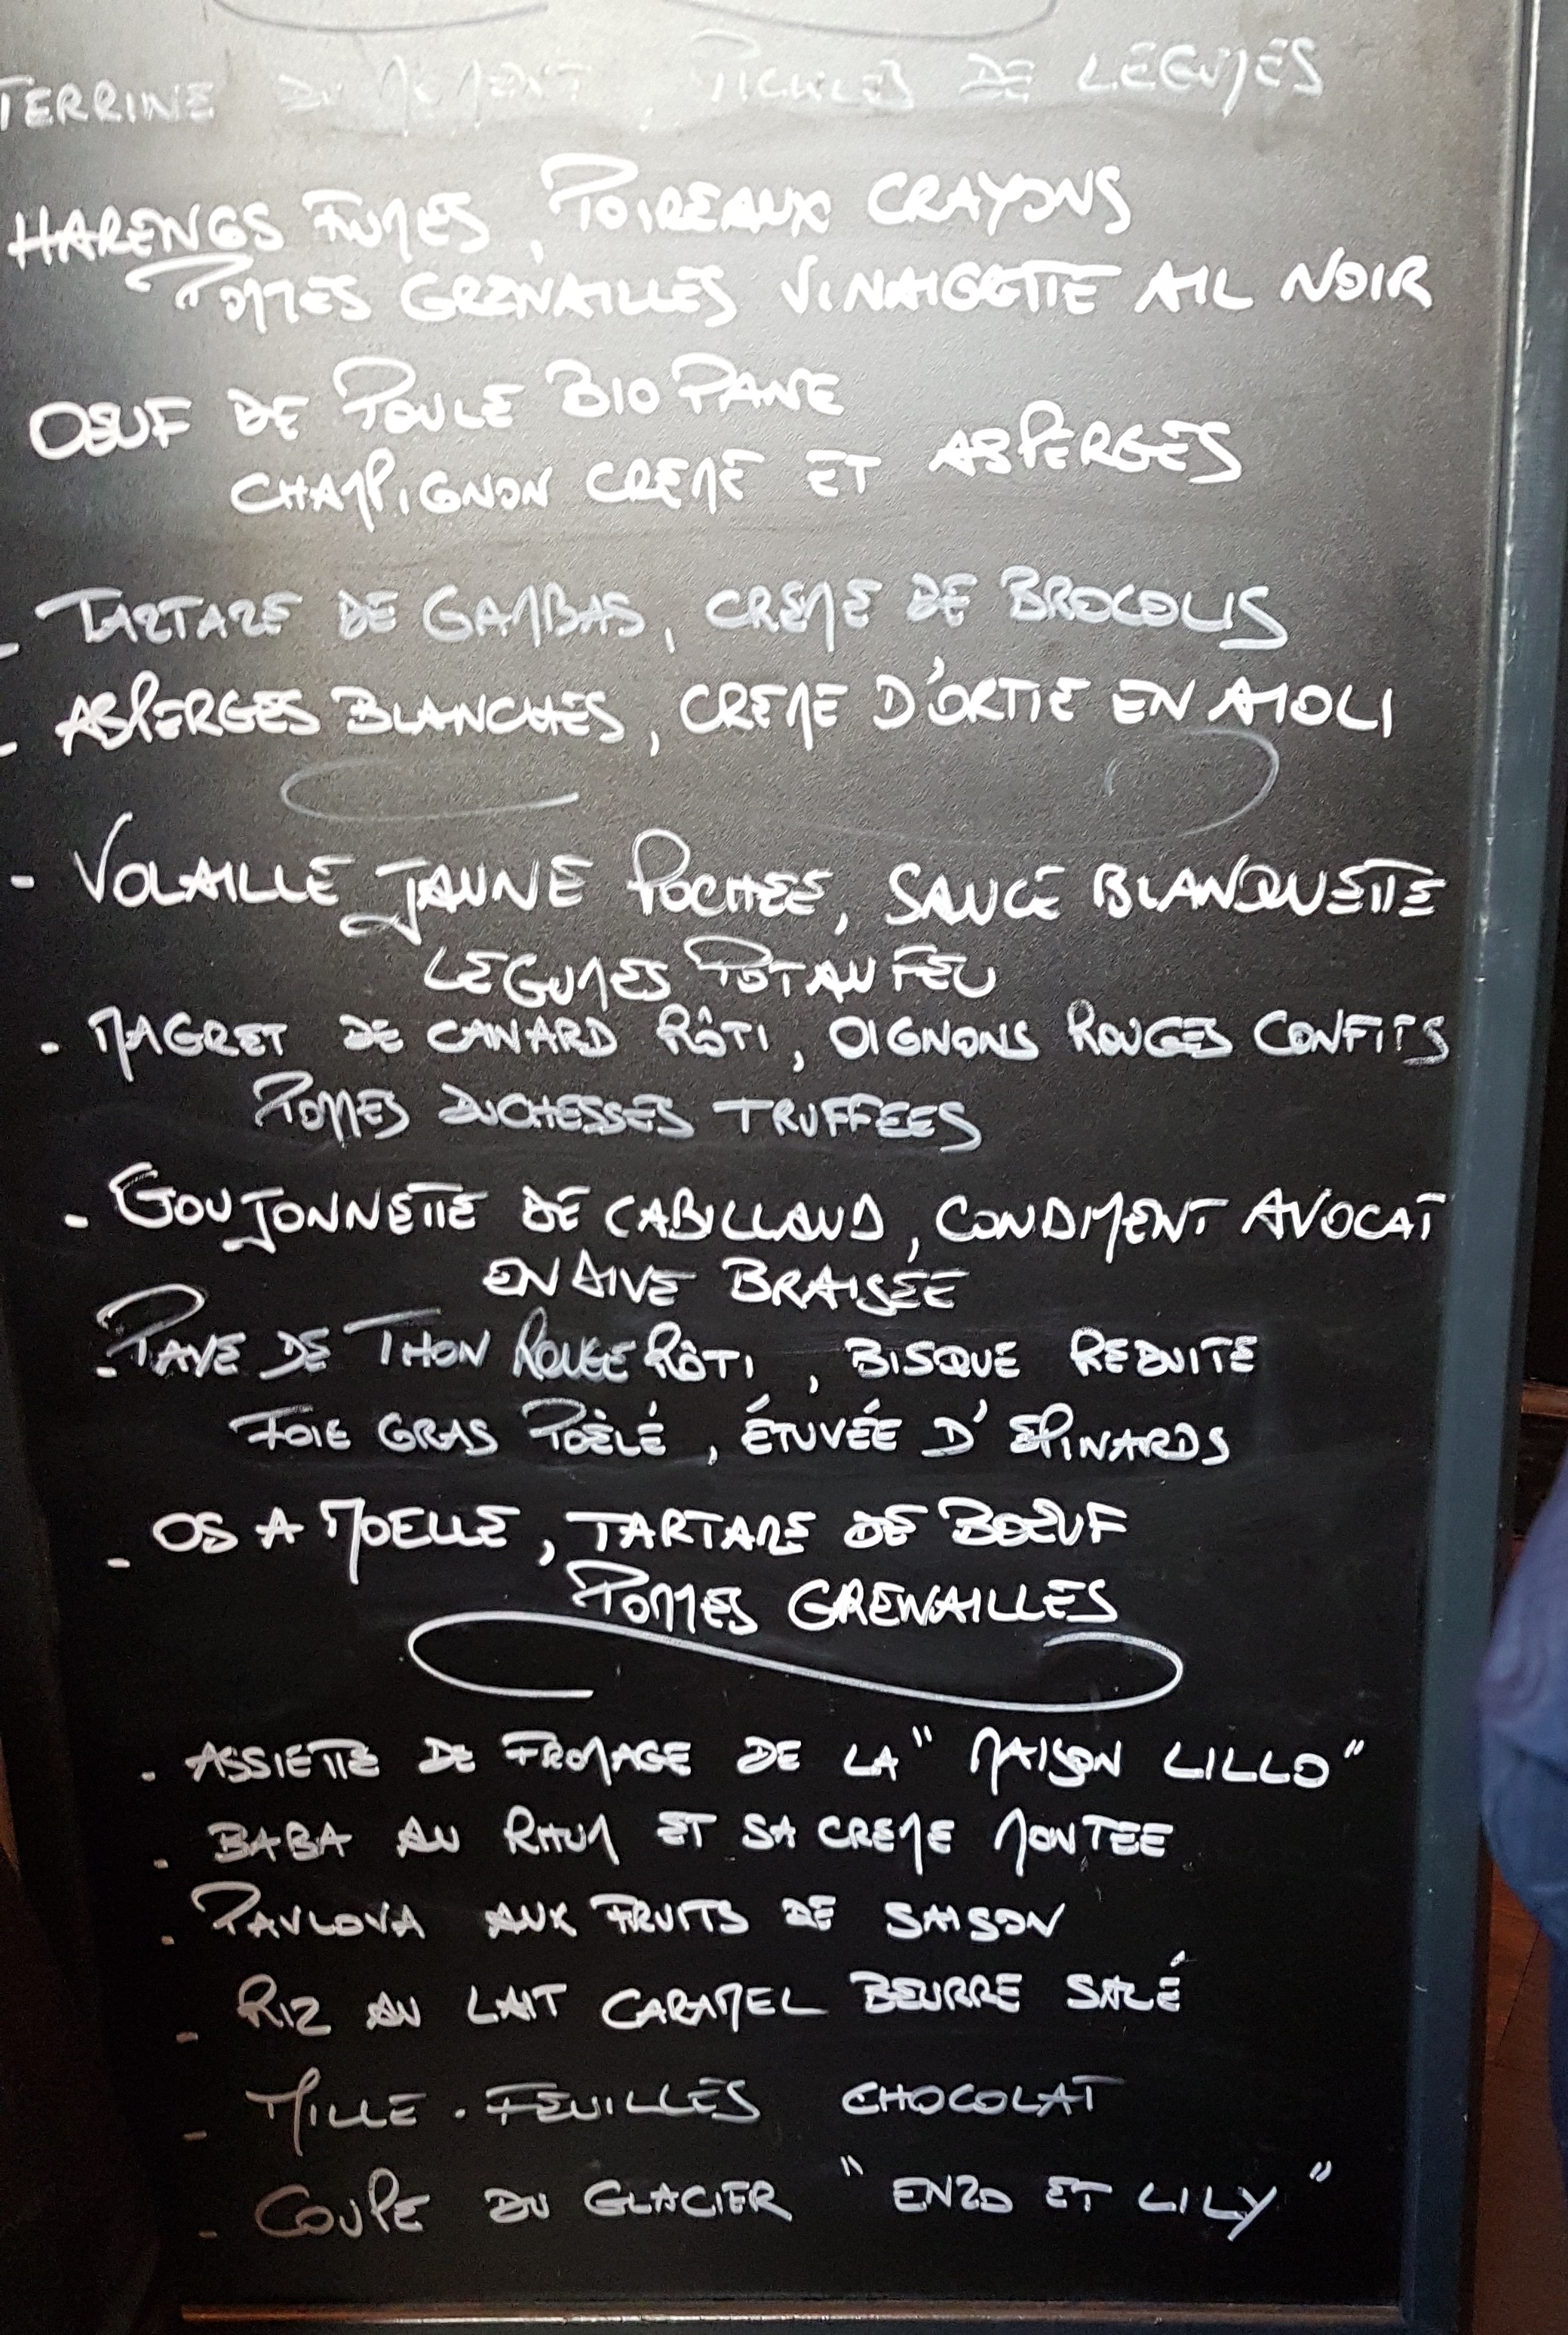 TERRINE DU MOMENT, PICKLES DE LEGUMES
HARENGS FUMES, POIREAUX CRAYONS
POMMES GRENAILLES VINAIGRETTE AIL NOIR
OEUF DE POULE BIO PANE
CHAMPIGNON CREME ET ASPERGES
- TARTARE DE GAMBAS, CREME DE BROCOLIS
- ASPERGES BLANCHES, CREME D'ORTIE EN AIOLI
- VOLAILLE JAUNE POCHEE, SAUCE BLANQUETTE
LEGUMES POT AU FEU
- MAGRET DE CANARD RÔTI, OIGNONS ROUGES CONFITS
POMMES DUCHESSES TRUFFEES
- GOUJONNETTE DE CABILLAUD, CONDIMENT AVOCAT
ENDIVE BRAISÉE
- PAVE DE THON ROUGE RÔTI, BISQUE REDUITE
FOIE GRAS POÈLÉ, ÉTUVÉE D'EPINARDS
- OS A MOELLE, TARTARE DE BOEUF
POMMES GRENAILLES
- ASSIETTE DE FROMAGE DE LA "MAISON LILLO"
- BABA AU RHUM ET SA CREME MONTEE
- PAVLOVA AUX FRUITS DE SAISON
- RIZ AU LAIT CARAMEL BEURRE SALÉ
- MILLE-FEUILLES CHOCOLAT
- COUPE DU GLACIER "ENZO ET LILY"